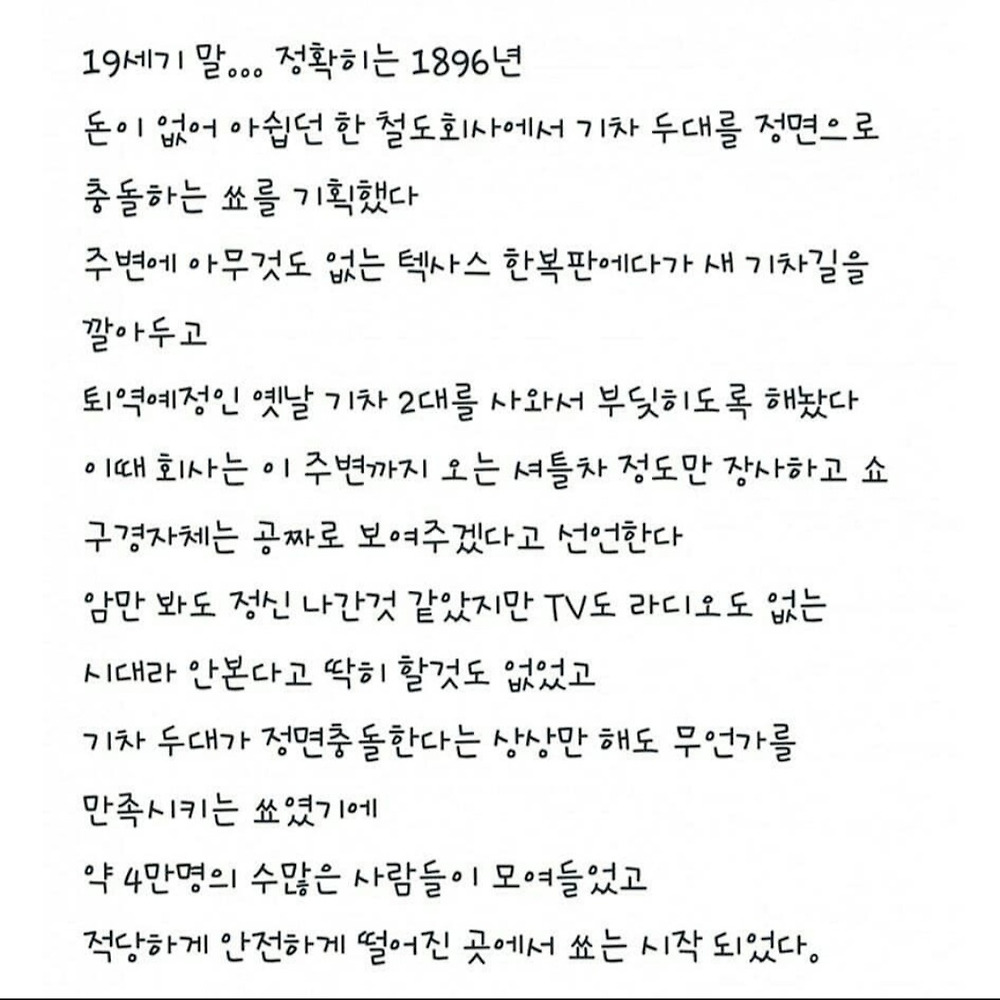 19세기 말... 정확히는 1896년
돈이 없어 아쉽던 한 철도회사에서 기차 두대를 정면으로
충돌하는 쑈를 기획했다
주변에 아무것도 없는 텍사스 한복판에다가 새 기차길을
깔아두고
퇴역예정인 옛날 기차 2대를 사와서 부딪히도록 해놨다
이때 회사는 이 주변까지 오는 셔틀차 정도만 장사하고 쇼
구경자체는 공짜로 보여주겠다고 선언한다
암만 봐도 정신 나간것 같았지만 TV도 라디오도 없는
시대라 안본다고 딱히 할것도 없었고
기차 두대가 정면충돌한다는 상상만 해도 무언가를
만족시키는 쑈였기에
약 4만명의 수많은 사람들이 모여들었고
적당하게 안전하게 떨어진 곳에서 쑈는 시작 되었다.